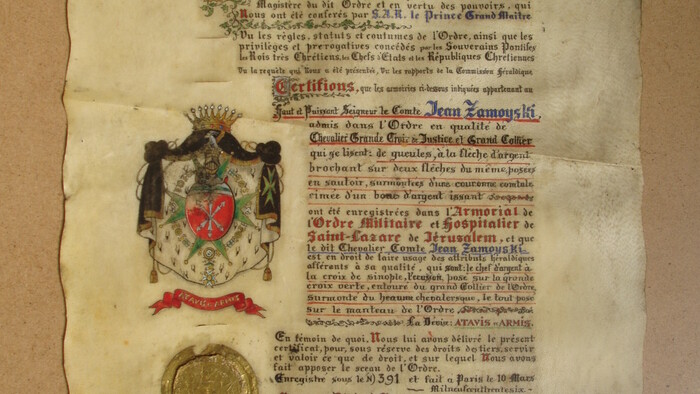 Magistère du dit Ordre et en vertu des pouvoirs, qui
Nous ont été conférés par S.A.R. le Prince Grand Maître
Vu les règles, statuts et coutumes de l'Ordre, ainsi que les
privilèges et prérogatives concédés par les Souverains Pontifes
les Rois très Chrétiens, les Chefs d'Etats et les Républiques Chrétiennes
Vu la requête qui Nous a été présentée, Vu les rapports de la Commission Héraldique
Certifions, que les armoiries ci-dessous indiquées appartenant au
Haut et Puissant Seigneur le Comte Jean Zamoyski,
admis dans l'Ordre en qualité de
Chevalier Grande Croix de Justice et Grand Collier
qui se lisent: de gueules, à la flèche d'argent
brochant sur deux flèches du même, posées
en sautoir, surmontées d'une couronne comtale
cimée d'un bouc d'argent issant
ont été enregistrées dans l'Armorial de
l'Ordre Militaire et Hospitalier de
Saint-Lazare de Jérusalem, et que
le dit Chevalier Comte Jean Zamoyski
est en droit de faire usage des attributs héraldiques
afférents à sa qualité, qui sont: le chef d'argent à
la croix de sinople, l'écusson posé sur la grande
croix verte, entouré du grand Collier de l'Ordre,
surmonté du heaume chevaleresque, le tout posé
sur le manteau de l'Ordre,
La Dévise: ATAVIS-ARMIS.
ATAVIS-ARMIS
En témoin de quoi, Nous lui avons délivré le présent
certificat, pour, sous réserve des droits de tiers, servir
et valoir ce que de droit, et sur lequel Nous avons
fait apposer le sceau de l'Ordre.
Enregistré sous le № 391 et fait à Paris le 10 Mars
Milneufcenttrentesix